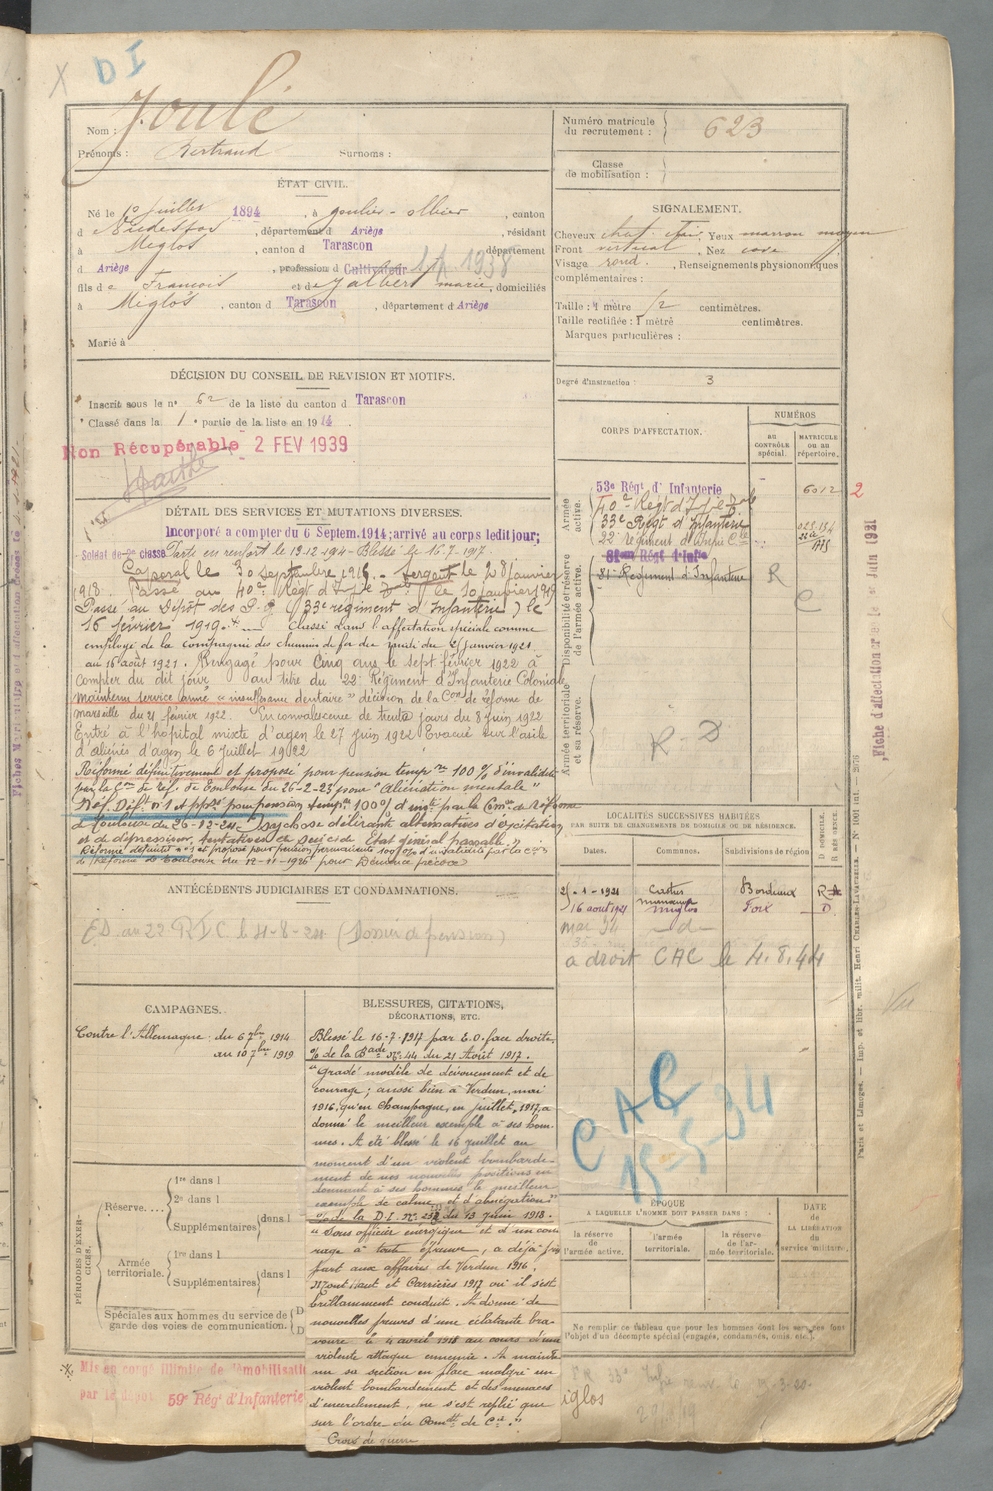 X D I
Nom : Joulé
Prénoms : Bertrand Surnoms :
ÉTAT CIVIL.
Né le 1er juillet 1894, à Goulier-Olbier, canton
d Vicdessos, département d Ariège, résidant
à Miglos, canton d Tarascon département
d Ariège, profession d Cultivateur 1938
fils de François et de Galbert Marie, domiciliés
à Miglos, canton d Tarascon, département d Ariège
Marié à
DÉCISION DU CONSEIL DE REVISION ET MOTIFS.
Inscrit sous le n° 62 de la liste du canton d Tarascon
Classé dans la 1e partie de la liste en 1914.
Non Récupérable 2 FEV 1939
DÉTAIL DES SERVICES ET MUTATIONS DIVERSES.
Incorporé a compter du 6 Septem. 1914; arrivé au corps ledit jour;
Soldat de 2e classe Parti en renfort le 13.12.1914 - Blessé le 16.7.1917.
Caporal le 30 Septembre 1916. - Sergent le 28 janvier
1918. Passé au 40e Régt d'Infie le 10 janvier 1919
Passé au Dépôt des P.G. (33e régiment d'Infanterie) le
16 février 1919. Classé dans l'affectation spéciale comme
employé de la Compagnie des chemins de fer du midi du 21 janvier 1921
au 16 août 1921. Rengagé pour Cinq ans le sept février 1922 à
compter du dit jour au titre du 22e Régiment d'Infanterie Coloniale
Maintenu service armé "insuffisance dentaire" décision de la Con de réforme de
Marseille du 21 février 1922. En convalescence de trente jours du 8 juin 1922
Entré à l'hôpital mixte d'agen le 27 juin 1922 Evacué sur l'asile
d'aliénés d'agen le 6 juillet 1922
Réformé définitivement et proposé pour pension tempre 100% d'invalidité
par la Con de réf. de Toulouse du 26-2-23 pour "Aliénation mentale"
Réf. Déf. n°1 et ppsé pour pension tempre 100% d'inté par la Comon de Réforme
de Toulouse du 26-12-24. Psychose délirante alternatives d'excitation
et de dépression, tentatives de suicide. Etat général passable."
Réformé définitif n°1 et proposé pour pension permanente 100% d'invalidité par la Con
de Réforme de Toulouse du 12-11-1926 pour Démence précoce
ANTÉCÉDENTS JUDICIAIRES ET CONDAMNATIONS.
E.D. au 22 R.I.C. le 4-8-24 (Dossier de pension)
CAMPAGNES.
Contre l'Allemagne : du 6 7bre 1914
au 10 7bre 1919
BLESSURES, CITATIONS,
DÉCORATIONS, ETC.
Blessé le 16-7-1917 par E.O. face droite.
O/ de la Bade N° 44 du 21 Août 1917.
"Gradé modèle de dévouement et de
courage; aussi bien à Verdun, mai
1916, qu'en Champagne, en juillet 1917, a
donné le meilleur exemple à ses hom-
mes. A été blessé le 16 juillet au
moment d'un violent bombarde-
ment de nos nouvelles positions en
donnant à ses hommes le meilleur
exemple de calme et d'abnégation"
O/ de la D.I. N° du 13 Juin 1918.
"Sous officier énergique et d'un cou-
rage à toute épreuve, a déjà pris
part aux affaires de Verdun 1916,
Mont Haut et Carrières 1917 où il s'est
brillamment conduit. A donné de
nouvelles preuves d'une éclatante bra-
voure le 4 avril 1918 au cours d'une
violente attaque ennemie. A mainte
nu sa section en place malgré un
violent bombardement et des menaces
d'encerclement, ne s'est replié que
sur l'ordre du Comdt de Cie."
Croix de guerre
PÉRIODES D'EXERCICES.
Réserve....
1re dans l
2e dans l
Supplémentaires dans l
Armée territoriale.
1re dans l
Supplémentaires dans l
Spéciales aux hommes du service de
garde des voies de communication.
Mis en congé illimité de démobilisatio
par le dépôt 59e Rég. d'Infanterie
Numéro matricule
du recrutement : 623
Classe
de mobilisation :
SIGNALEMENT.
Cheveux chat. clair, Yeux marron moyen
Front vertical, Nez cave
Visage rond. , Renseignements physionomiques
complémentaires :
Taille : 1 mètre 72 centimètres.
Taille rectifiée : 1 mètre centimètres.
Marques particulières :
Degré d'instruction : 3
CORPS D'AFFECTATION.
NUMÉROS
AU CONTRÔLE spécial.
MATRICULE OU AU répertoire.
Armée active.
53e Régt d'Infanterie 6012 2
40e Régt d'Infie
33e Régt d'Infanterie
22e régiment d'Infie Cle
Disponibilité et réserve de l'armée active.
81e Régt d'Infie
81e Régiment d'Infanterie R
C
Armée territoriale et sa réserve.
R - D
LOCALITÉS SUCCESSIVES HABITÉES
PAR SUITE DE CHANGEMENTS DE DOMICILE OU DE RÉSIDENCE.
Dates. Communes. Subdivisions de région D DOMICILE. R RÉSIDENCE.
21-1-1921 Castets Bordeaux R
16 août 1921 Miglos Foix D.
mai 34 - d -
a droit CAC le 4.8.44
CAC
15-5-34
ÉPOQUE
A LAQUELLE L'HOMME DOIT PASSER DANS :
la réserve de l'armée active. l'armée territoriale. la réserve de l'armée territoriale.
DATE de LA LIBÉRATION du service militaire.
Ne remplir ce tableau que pour les hommes dont les services font
l'objet d'un décompte spécial (engagés, condamnés, omis, etc.).
iglos
Paris et Limoges. — Imp. et libr. milit. Henri Charles-Lavauzelle. — N° 1001 int. — 2076